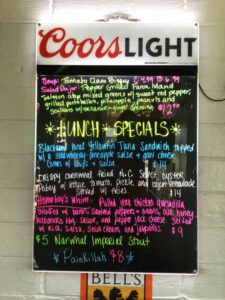 Coors LIGHT
Soup: Tomato Clam Bisque
Salad Place: Pepper Grilled Faroe Island
Salmon atop mixed greens w/ sweet red pepper,
grilled pineapple, peanuts and
dressing
LUNCH SPECIALS
Blackened local Yellowfin Tuna Sandwich topped
w/ a strawberry-pineapple salsa + goat cheese
Comes w/ chips + salsa
Crispy cornmeal fried N.C. Select oyster
Poboy w/ lettuce, tomato, pickle, and remoulade
Served w/ fries $14
Homeboy's Whim: Pulled jerk chicken quesadilla
w/ sautéed peppers + onions, our honey
habanero sauce, and pepper jack cheese. Served
w/ rice, salsa, sour cream, and jalapeños $9
$5 Narwhal Imperial Stout
Painkillah $8
BELL'S